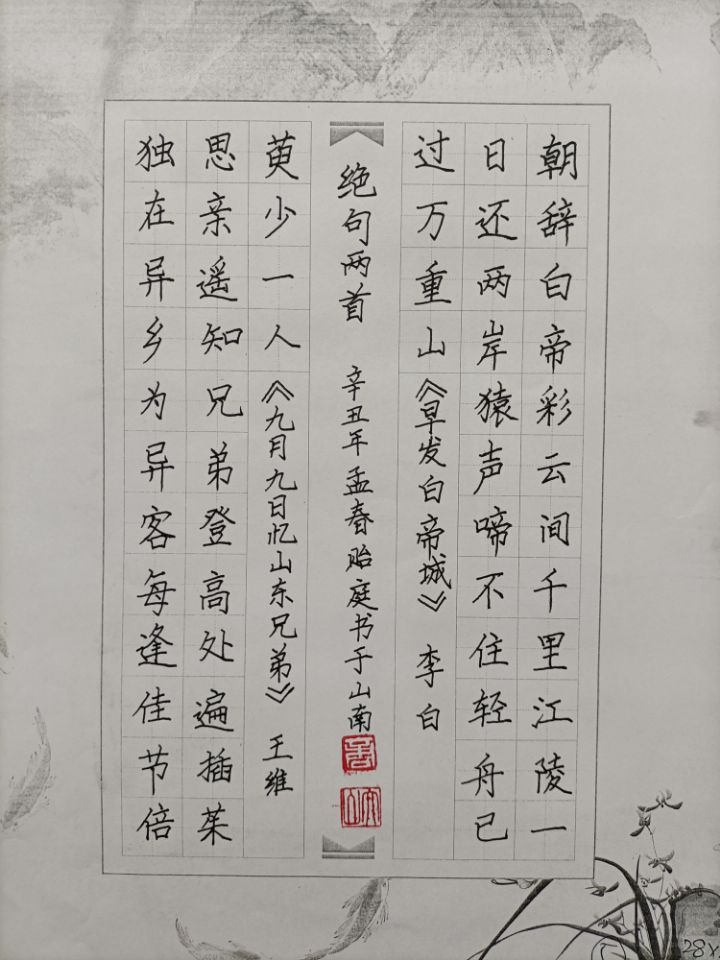 朝辞白帝彩云间千里江陵一
日还两岸猿声啼不住轻舟已
过万重山《早发白帝城》 李白
绝句两首 辛丑年孟春贻庭书于山南
独在异乡为异客每逢佳节倍
思亲遥知兄弟登高处遍插茱
萸少一人《九月九日忆山东兄弟》 王维